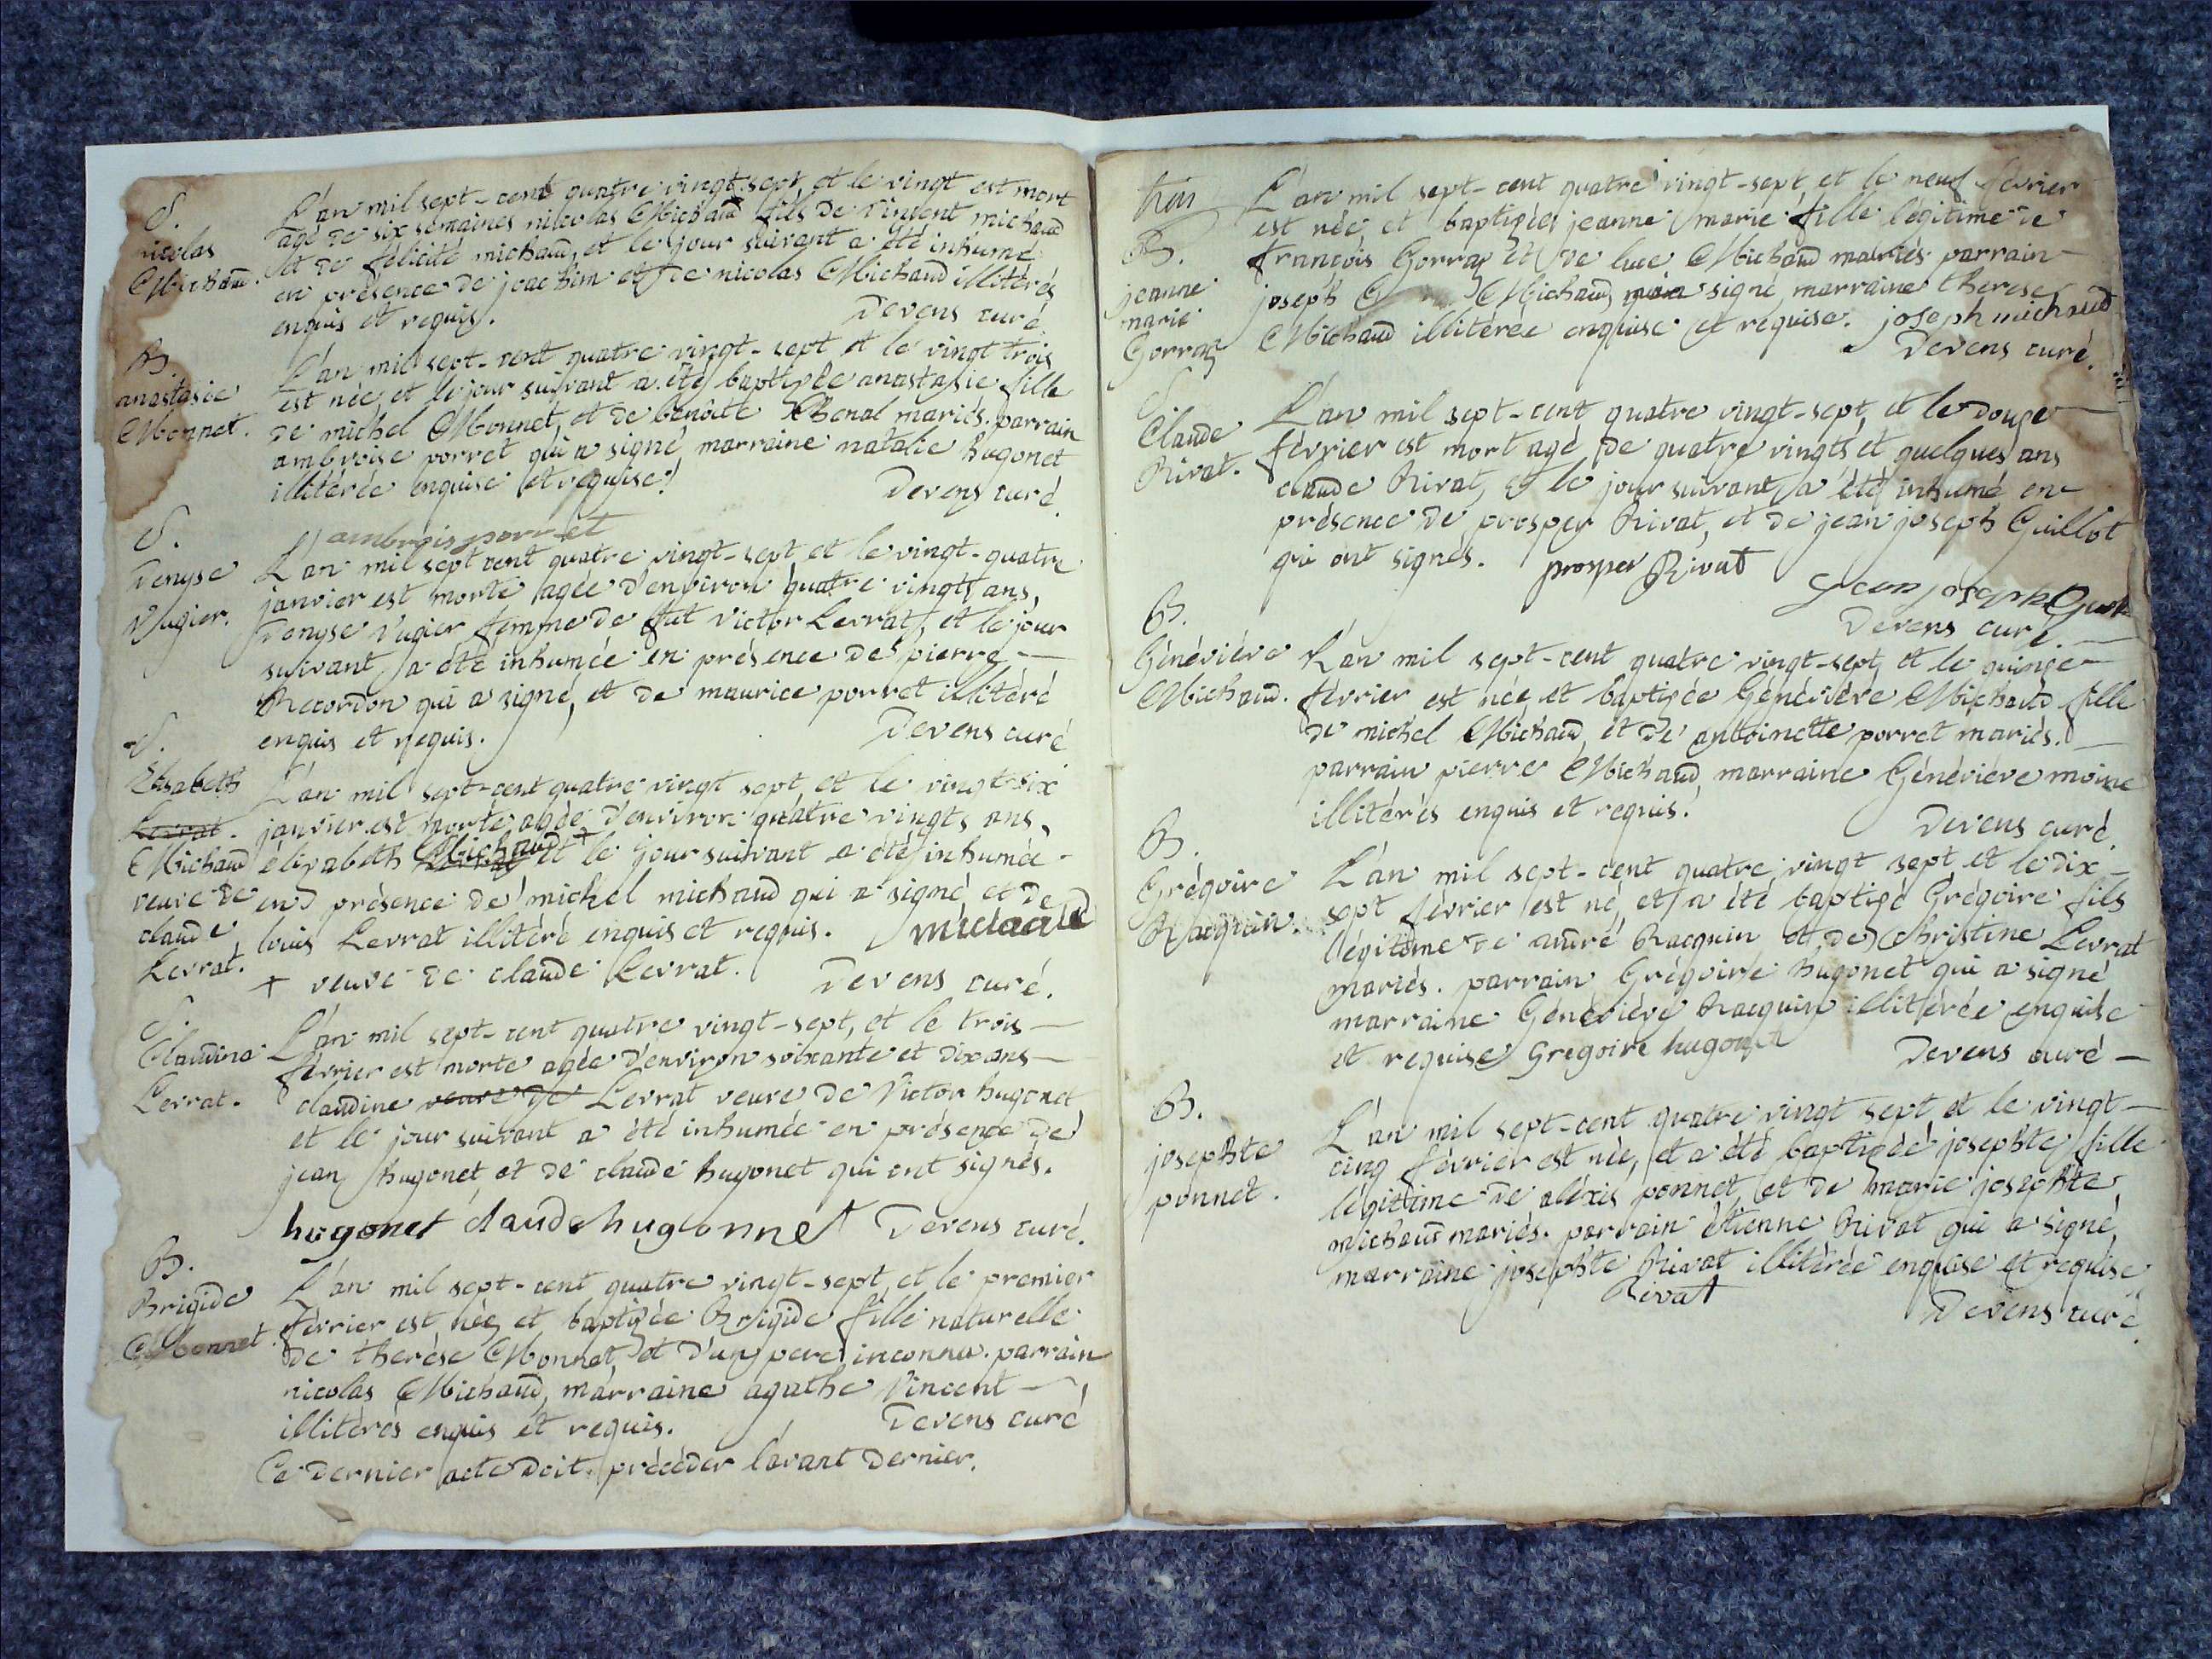 S.
nicolas
Michaud.
L'an mil sept-cent quatre vingt-sept, et le vingt est mort
agé de six semaines nicolas Michaud fils de vincent michaud
et de félicité michaud, et le jour suivant a été inhumé
en présence de joachim et de nicolas Michaud illitérés
enquis et requis.
Devens curé.
B.
anastasie
Monnet.
L'an mil sept-cent quatre vingt-sept et le vingt trois
est née, et le jour suivant a été baptizée anastasie fille
de michel Monnet, et de benoîte Chenal mariés. parrain
ambroise porret qui a signé, marraine natalie hugonet
illitérée enquise et requise.
Devens curé.
ambrois porret
S.
Denyse
Vugier.
L'an mil sept cent quatre vingt-sept et le vingt-quatre
janvier est morte agée d'environ quatre vingts ans,
Denyse Vugier femme de fut Victor Levrat, et le jour
suivant, a été inhumée en présence de pierre
Recordon qui a signé, et de maurice porret illitéré
enquis et requis.
Devens curé
S.
Elisabeth
Levrat.
Michaud
veuve de
claude
Levrat.
L'an mil sept-cent quatre vingt sept, et le vingt-six
janvier est morte agée d'environ quatre vingts ans,
élizabeth Michaud + et le jour suivant a été inhumée
en présence de michel michaud qui a signé, et de
louis Levrat illitéré enquis et requis.
+ veuve de claude Levrat.
Devens curé.
S.
Claudine
Levrat.
L'an mil sept-cent quatre vingt-sept, et le trois
février est morte agée d'environ soixante et dix ans
claudine veuve de Levrat veuve de Victor hugonet
et le jour suivant a été inhumée en présence de
jean hugonet, et de claude hugonet qui ont signés.
hugonet claude hugonnet Devens curé.
B.
Brigide
Monnet.
L'an mil sept-cent quatre vingt-sept, et le premier
février est née, et baptizée Brigide fille naturelle
de therése Monnet, et d'un pere inconnu. parrain
nicolas Michaud, marraine agathe Vincent
illitérés enquis et requis.
Devens curé
Ce dernier acte doit précéder l'avant dernier.
trois
B.
jeanne
marie
Gorraz
L'an mil sept-cent quatre vingt-sept, et le neuf février
est née, et baptizée jeanne marie fille légitime de
françois Gorraz et de luce Michaud mariés parrain
joseph Michaud, signé, marraine therese
Michaud illitérée enquise et requise. joseph michaud
Devens curé.
S.
Claude
Rivat.
L'an mil sept-cent quatre vingt-sept, et le douze
février est mort agé de quatre vingts et quelques ans
claude Rivat, et le jour suivant, a été inhumé en
présence de prosper Rivat, et de jean joseph Guillot
qui ont signés. prosper Rivat
Jean joseph
Devens curé.
B.
Généviéve
Michaud.
L'an mil sept-cent quatre vingt-sept, et le quinze
février est née, et baptizée Généviéve Michaud fille
de michel Michaud, et de antoinette porret mariés.
parrain pierre Michaud, marraine Généviéve moine
illitérés enquis et requis.
Devens curé.
B.
Grégoire
Racquin.
L'an mil sept-cent quatre vingt sept et le dix-
sept février est né, et a été baptizé Grégoire fils
légitime de andré Racquin et de Christine Levrat
mariés. parrain Grégoire hugonet qui a signé
marraine Généviéve Racquin illitérée enquise
et requise Gregoire hugonet
Devens curé
B.
josephte
ponnet.
L'an mil sept-cent quatre vingt sept, et le vingt-
cinq février est née, et a été baptizée josephte fille
légitime de aléxis ponnet, et de marie josephte
michaud mariés. parrain étienne Rivat qui a signé,
marraine josephte Rivat illitérée enquise et requise
Rivat
Devens curé.